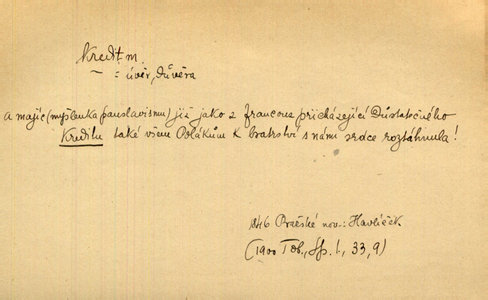 Kredit m.
= úvěr, důvěra
a majíc (myšlenka panslavismu) již jako z Francouz přicházející Důstatečného
Kreditu také všem Polákům k bratrství s námi srdce roztáhnula!
1846 Pražské nov.: Havlíček
(1900 Tob., Sp. I, 33, 9)